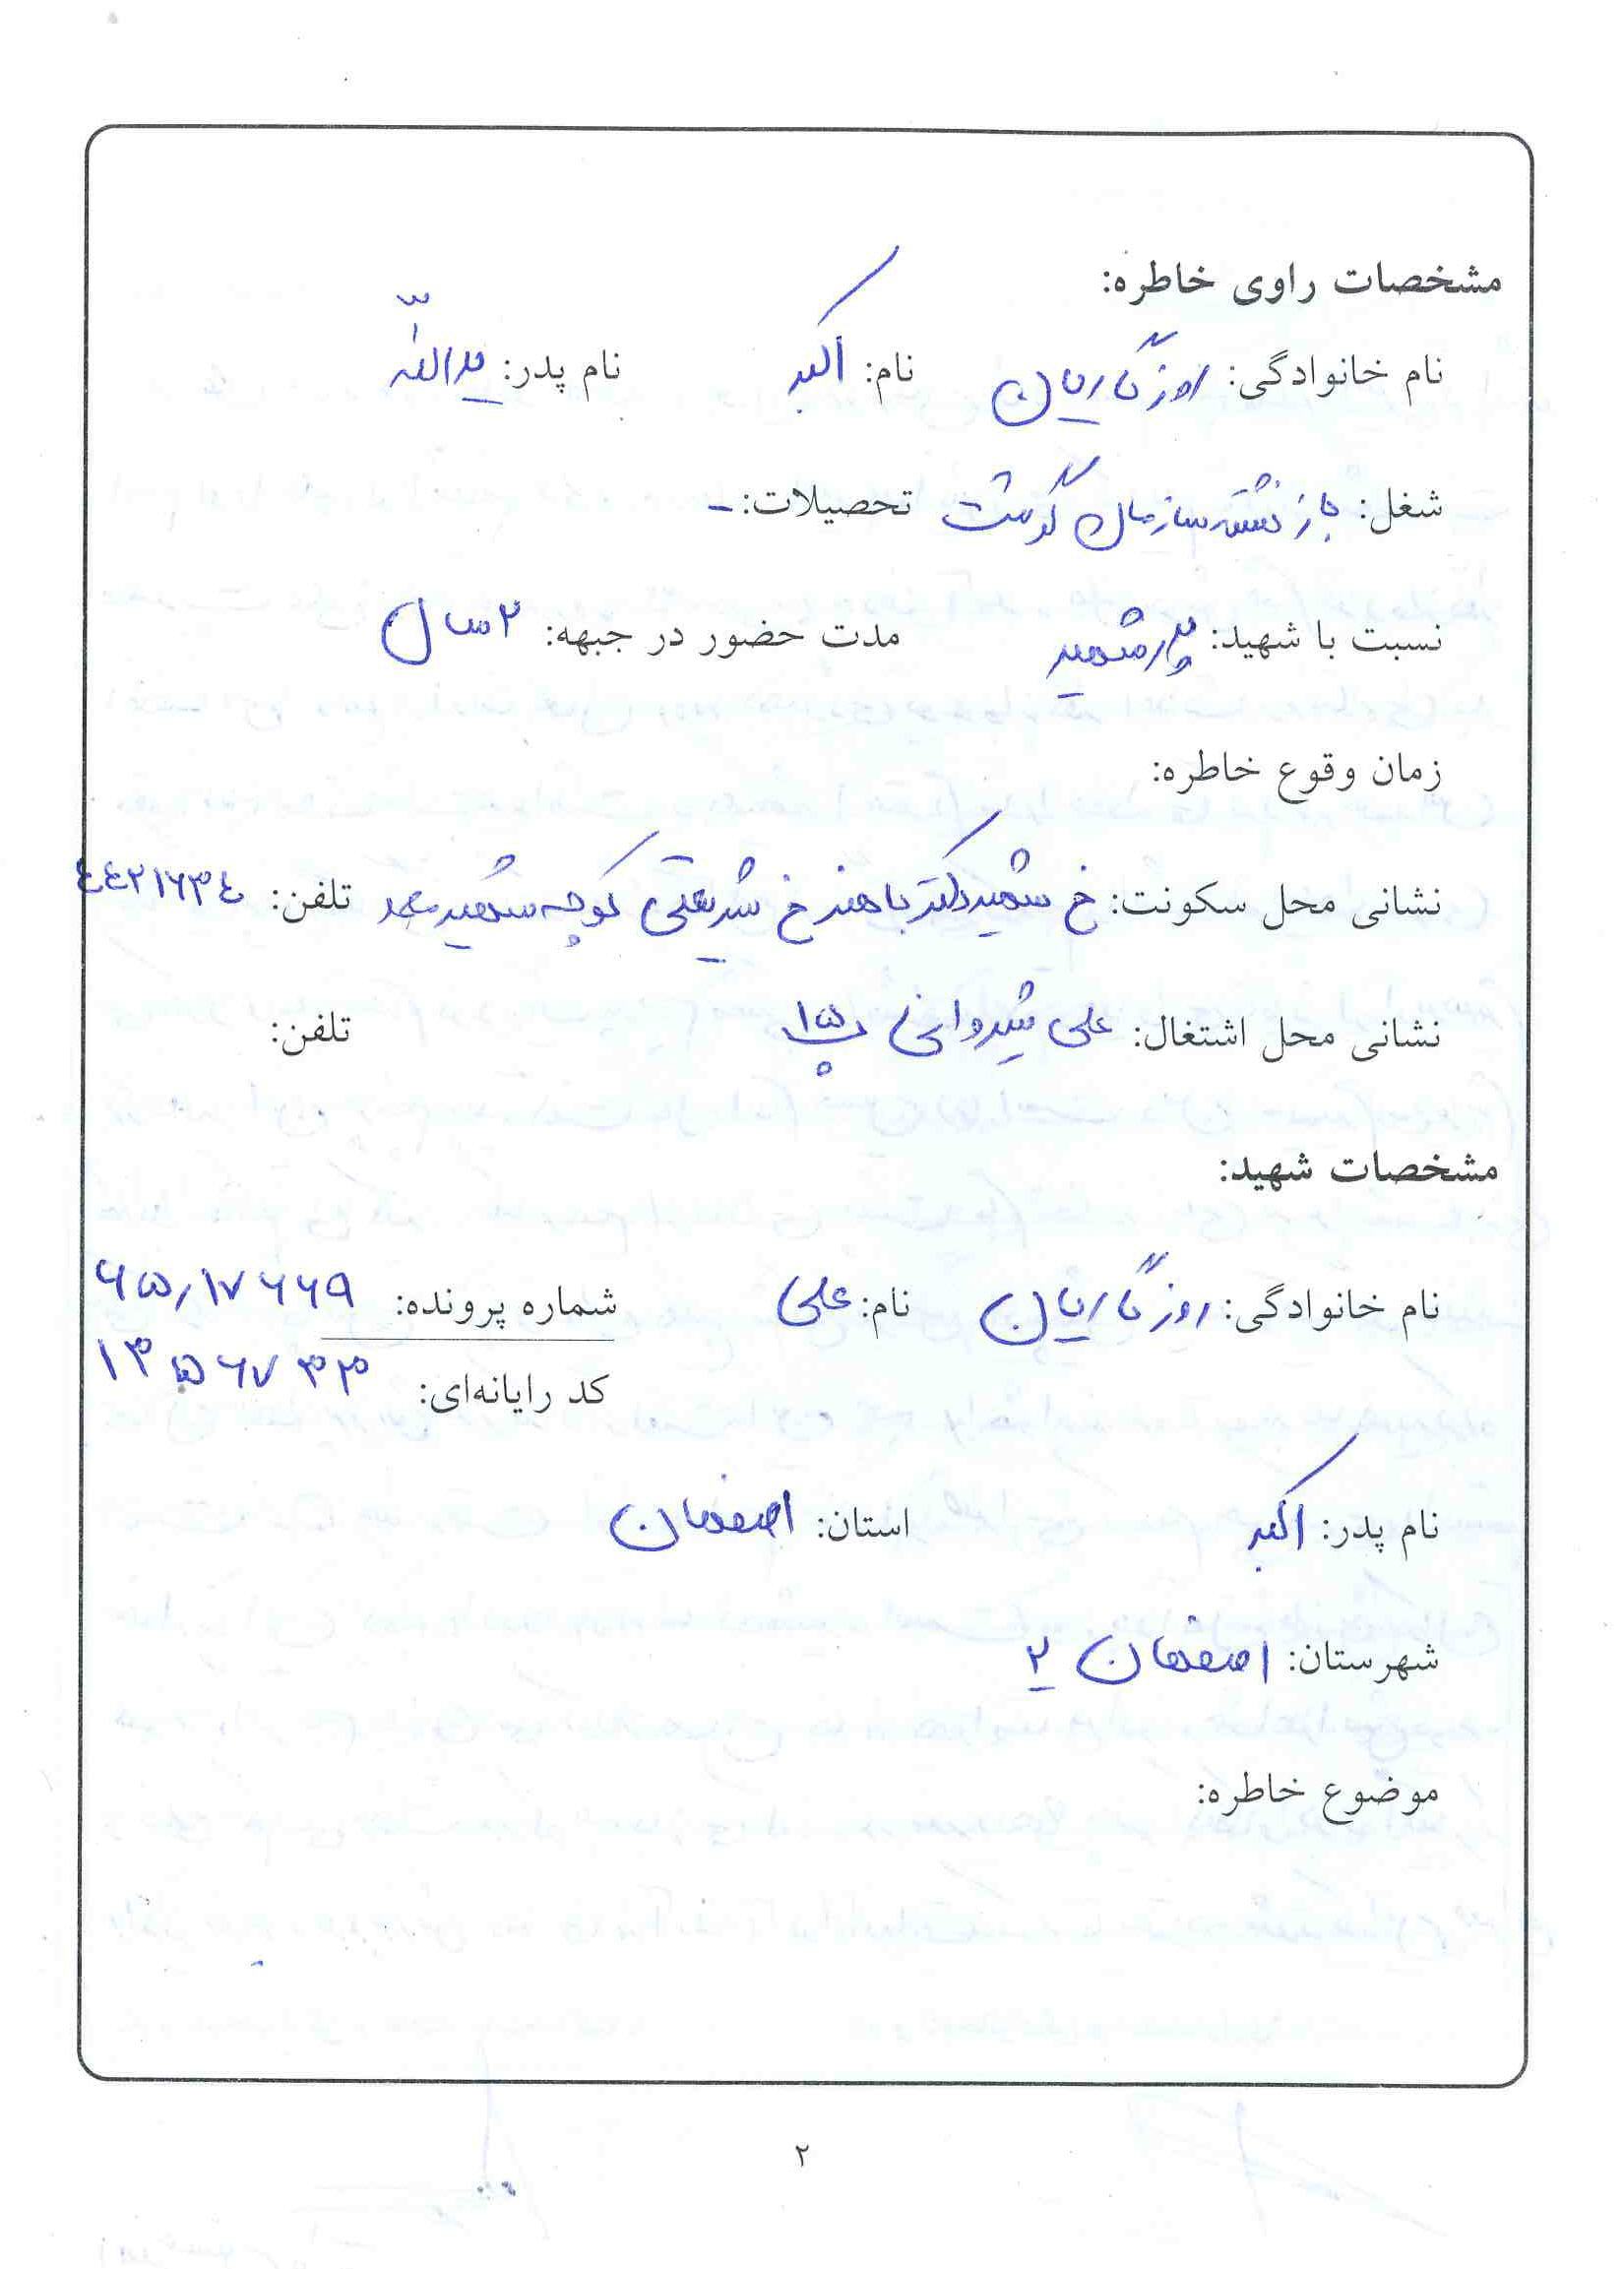 مشخصات راوی خاطره:
نام خانوادگی: روزگاریان نام: اکبر نام پدر: یداللّه
شغل: بازنشسته سازمان گوشت تحصیلات: -
نسبت با شهید: پدر شهید مدت حضور در جبهه: ۲ سال
زمان وقوع خاطره:
نشانی محل سکونت: خ شهید دکتر باهنر خ شریعتی کوچه شهید محمد تلفن: ٤٤۲۱۶۳٤
نشانی محل اشتغال: علی شیروانی پ ۱۵ تلفن:
مشخصات شهید:
نام خانوادگی: روزگاریان نام: علی شماره پرونده: ۶۵٫۱۷۶۶۹
کد رایانه‌ای: ۱۳۵۶۷۳۳
نام پدر: اکبر استان: اصفهان
شهرستان: اصفهان ۲
موضوع خاطره:
۲